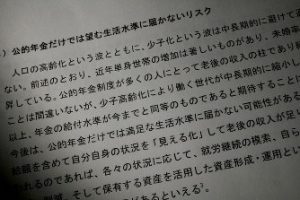 ）公的年金だけでは望む生活水準に届かないリスク
人口の高齢化という波とともに、少子化という波は中長期的に避けて通
ない。前述のとおり、近年単身世帯の増加は著しいものがあり、未婚率
昇している。公的年金制度が多くの人にとって老後の収入の柱であり
ことは間違いないが、少子高齢化により働く世代が中長期的に縮小し
以上、年金の給付水準が今までと同等のものであると期待することに
今後は、公的年金だけでは満足な生活水準に届かない可能性がある
給額を含めて自分自身の状況を「見える化」して老後の収入が足
れるのであれば、各々の状況に応じて、就労継続の模索、自ら
削減、そして保有する資産を活用した資産形成・運用とい
があるといえる